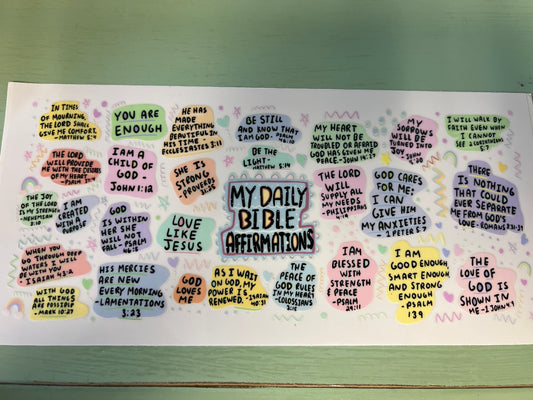 IN TIMES
OF MOURNING,
THE LORD SHALL
GIVE ME COMFORT.
- MATTHEW 5:4
YOU ARE
ENOUGH
HE HAS
MADE
EVERYTHING
BEAUTIFUL IN
HIS TIME -
ECCLESIASTES 3:11
BE STILL
AND KNOW THAT
I AM GOD - PSALM
46:10
MY HEART
WILL NOT BE
TROUBLED OR AFRAID
GOD HAS GIVEN ME
PEACE - JOHN 14:27
MY
SORROWS
WILL BE
TURNED INTO
JOY - JOHN
I WILL WALK BY
FAITH EVEN WHEN
I CANNOT
SEE - 2 CORINTHIANS
5:7
THE LORD
WILL PROVIDE
ME WITH THE DESIRES
OF MY HEART
- PSALM
I AM A
CHILD OF
GOD -
JOHN 1:12
SHE IS
STRONG
- PROVERBS
31:25
BE THE
LIGHT -
MATTHEW 5:14
THE LORD
WILL
SUPPLY ALL
MY NEEDS
- PHILIPPIANS
4:19
GOD CARES
FOR ME;
I CAN
GIVE HIM
MY ANXIETIES
- 1 PETER 5:7
THERE
IS NOTHING
THAT COULD
EVER SEPARATE
ME FROM GOD'S
LOVE - ROMANS 8:38-39
THE JOY
OF THE LORD
IS MY STRENGTH
- NEHEMIAH
8:10
I AM
CREATED
WITH A
PURPOSE
GOD
IS WITHIN
HER SHE
WILL NOT
FALL - PSALM
46:5
LOVE
LIKE
JESUS
MY DAILY
BIBLE
AFFIRMATIONS
WHEN YOU
GO THROUGH DEEP
WATERS I WILL
BE WITH YOU
- ISAIAH 43:2
HIS MERCIES
ARE NEW
EVERY MORNING
- LAMENTATIONS
3:23
GOD
LOVES
ME
AS I WAIT
ON GOD, MY
POWER IS
RENEWED. - ISAIAH
THE
PEACE OF
GOD RULES
IN MY HEART
- COLOSSIANS
3:15
I AM
BLESSED
WITH STRENGTH
& PEACE
- PSALM
29:11
I AM
GOOD ENOUGH
SMART ENOUGH
AND STRONG
ENOUGH
- PSALM
139
THE
LOVE OF
GOD IS
SHOWN IN
ME - 1 JOHN 4:9
WITH GOD
ALL THINGS
ARE POSSIBLE
- MARK 10:27